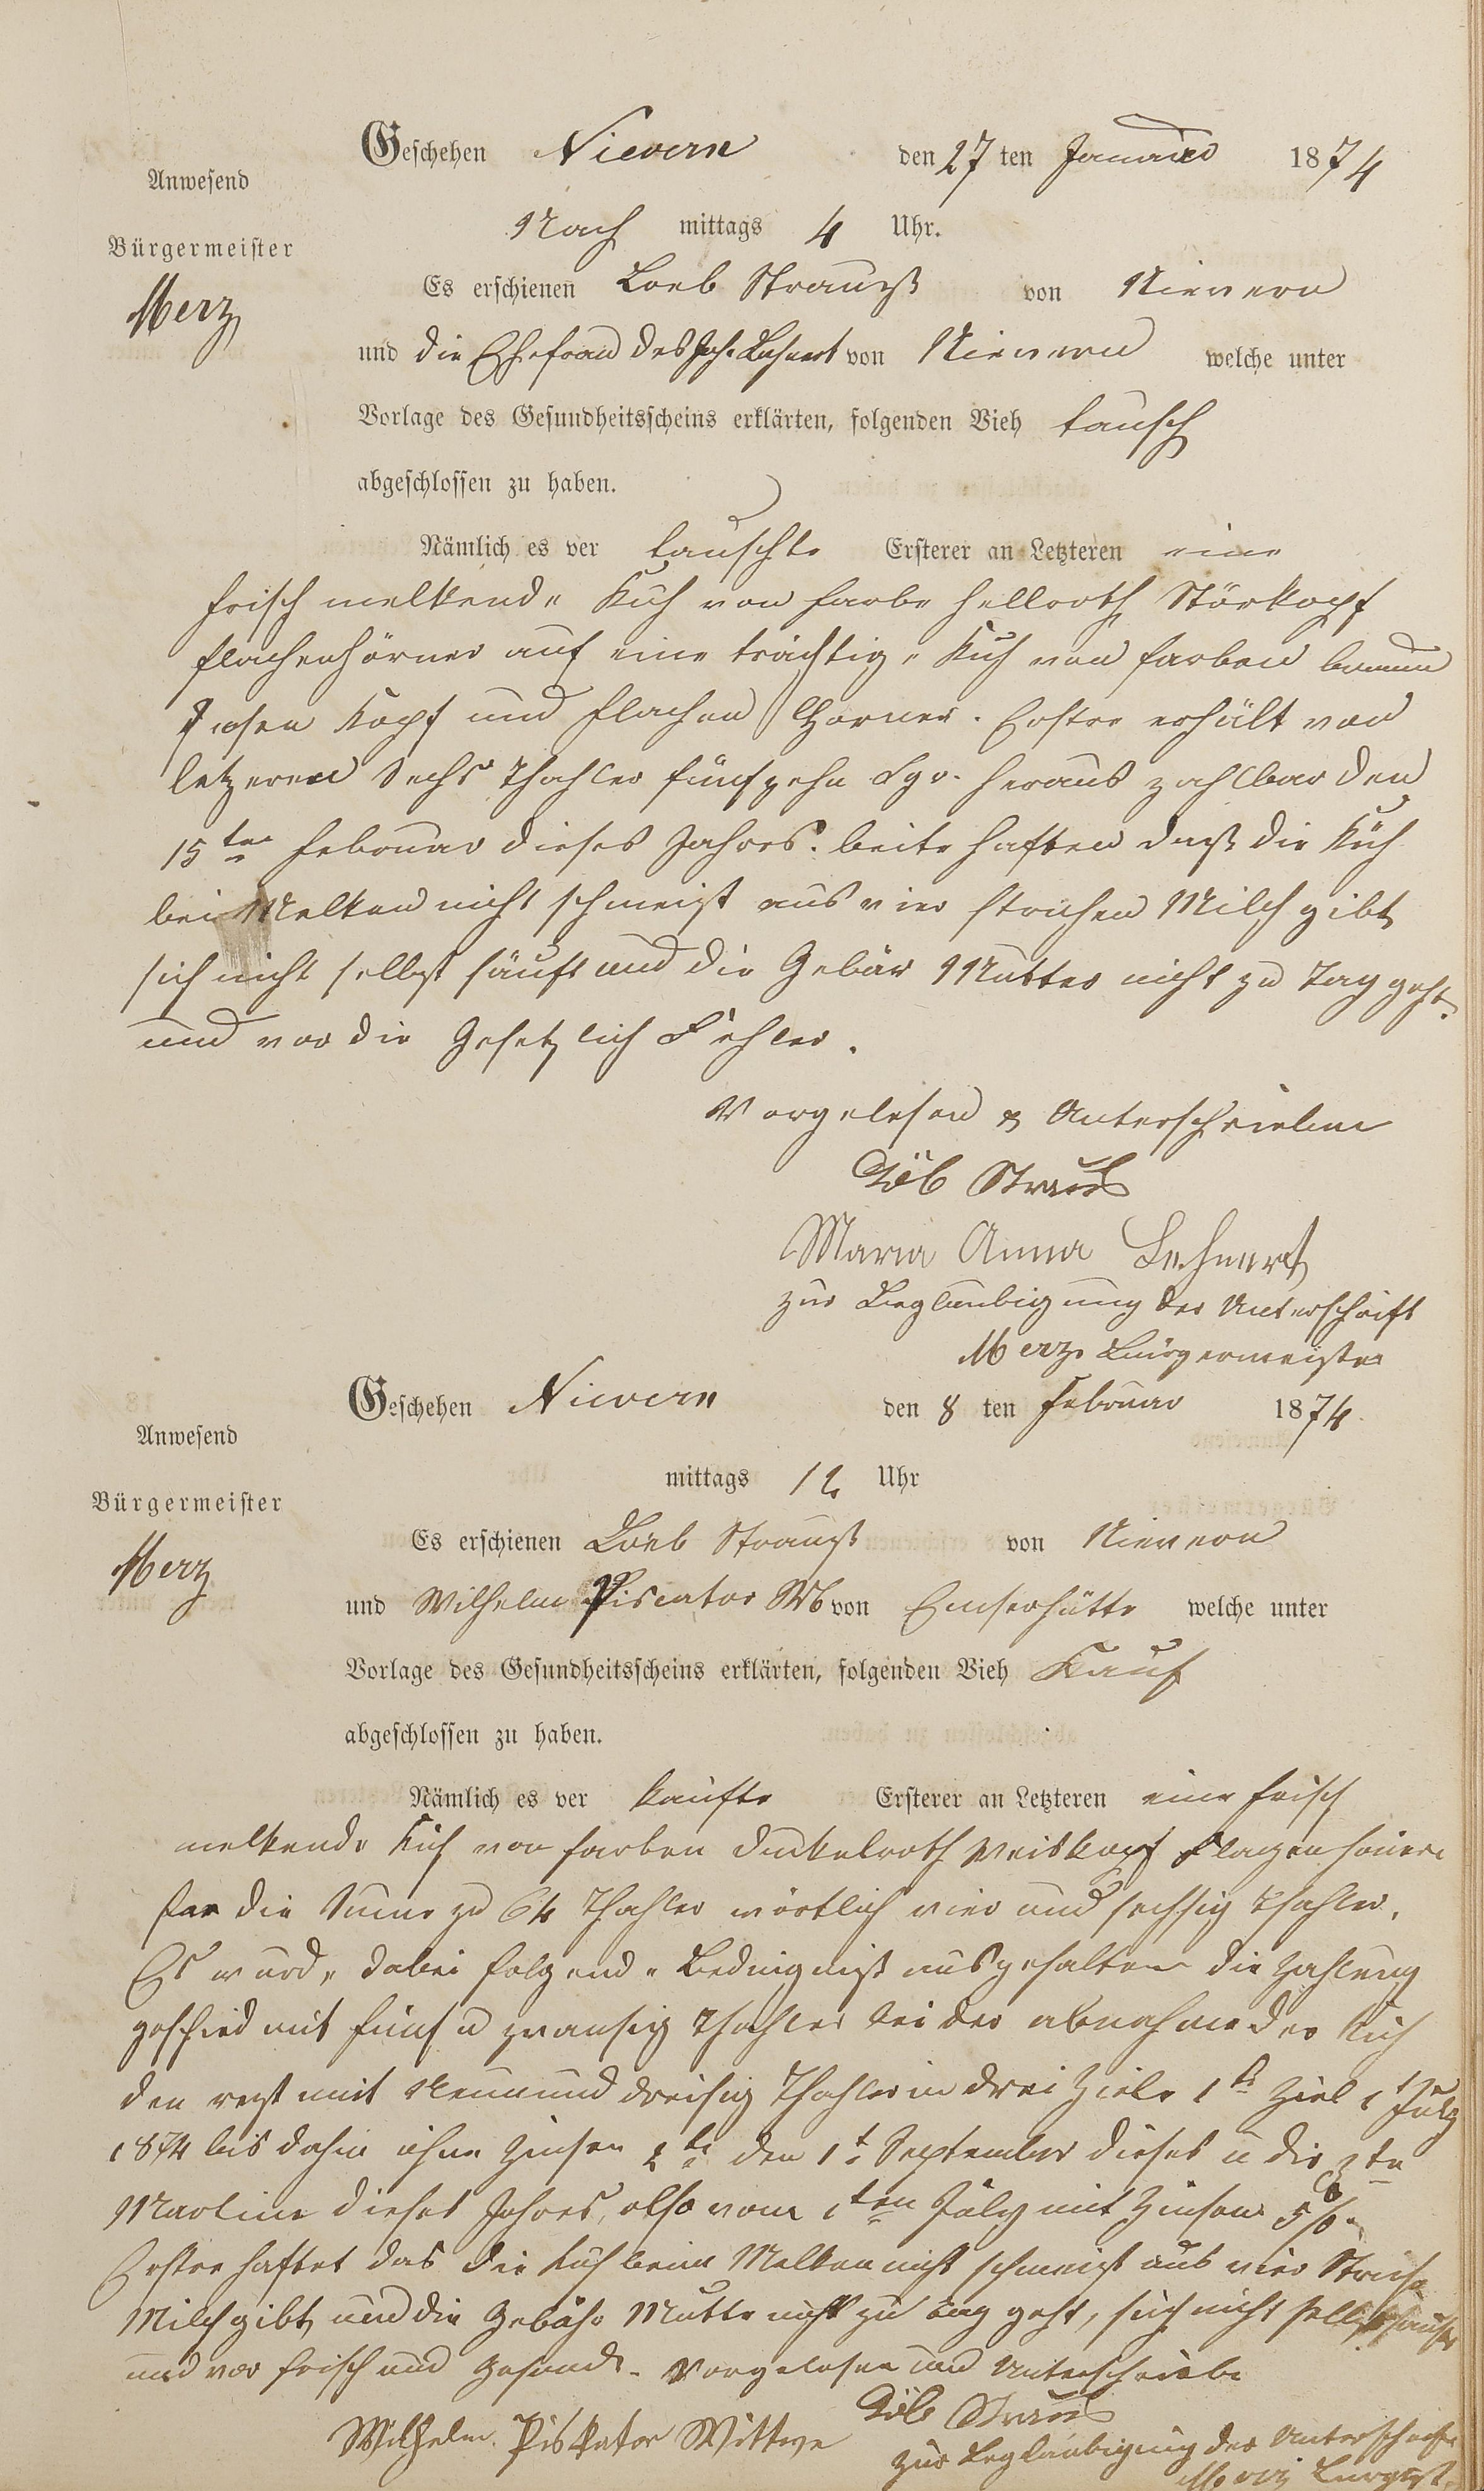 Geschehen Nievern den 27 ten Januar 1874
Anwesend
Nach mittags 4 Uhr.
Bürgermeister
Merz
Es erschienen Loeb Strauß von Nievern
und die Ehefrau des Joh. Lehnert von Nievern welche unter
Vorlage des Gesundheitsscheins erklärten, folgenden Vieh tausch
abgeschlossen zu haben.
Nämlich es ver tauschte Ersterer an Letzteren eine
frisch melkende Kuh von Farbe hellroth Störkopf
flachenhörner auf eine trächtige Kuh von farben braun
Kopf und flachen Hörner. Erstre erhält von
letzeren Sechs Thahler fünfzehn Sgr. heraus zahlbar den
15ten Februar dieses Jahres. beite haften daß die Kuh
bei Melken nicht schmeißt aus vier strichen Milch gibt
sich nicht selbst säuft und die Gebär Mutter nicht zu Tag geht.
und vor die Gesetzlich Fehler.
Vorgelesen & Unterschrieben
Löb Straus
Maria Anna Lehnert
zur Beglaubigung der Unterschrift
Merz Bürgermeister
Geschehen Nievern den 8 ten Februar 1874
Anwesend
mittags 12 Uhr
Bürgermeister
Merz
Es erschienen Loeb Strauß von Nievern
und Wilhelm Piscator Wb von Emserhütte welche unter
Vorlage des Gesundheitsscheins erklärten, folgenden Vieh Kauf
abgeschlossen zu haben.
Nämlich es ver kaufte Ersterer an Letzteren eine frisch
melkende Kuh von farben dunkelroth Weiskopf
für die Sume zu 64 Thahler wörtlich vier und sechsig Thahler.
Es wurde dabei folgende Bedingniß ausgehalten die Zahlung
geschied mit fünf u zwansig Thahler bei der abnahme der Kuh
den rest mit Neunund dreisig Thahler in drei Ziele 1te Ziel 1t July
1874 bis dahin ohne Zinsen 2te den 1t September dieses u die 3te
Martine dieses Jahres, also vom 1ten July mit Zinsen 5%.
Erstre haftet das die Kuh beim Melken nicht schmeist aus vier Striche
Milch gibt und die Gebähr Mutter nicht zu tag geht, sich nicht selbst sauft
und vor frisch und Gesund. Vorgelesen und Unterschriebe
Löb Straus
Wilhelm Piskator Wittwe
zur Beglaubigung der Unterschriften
Merz Bürgerst.